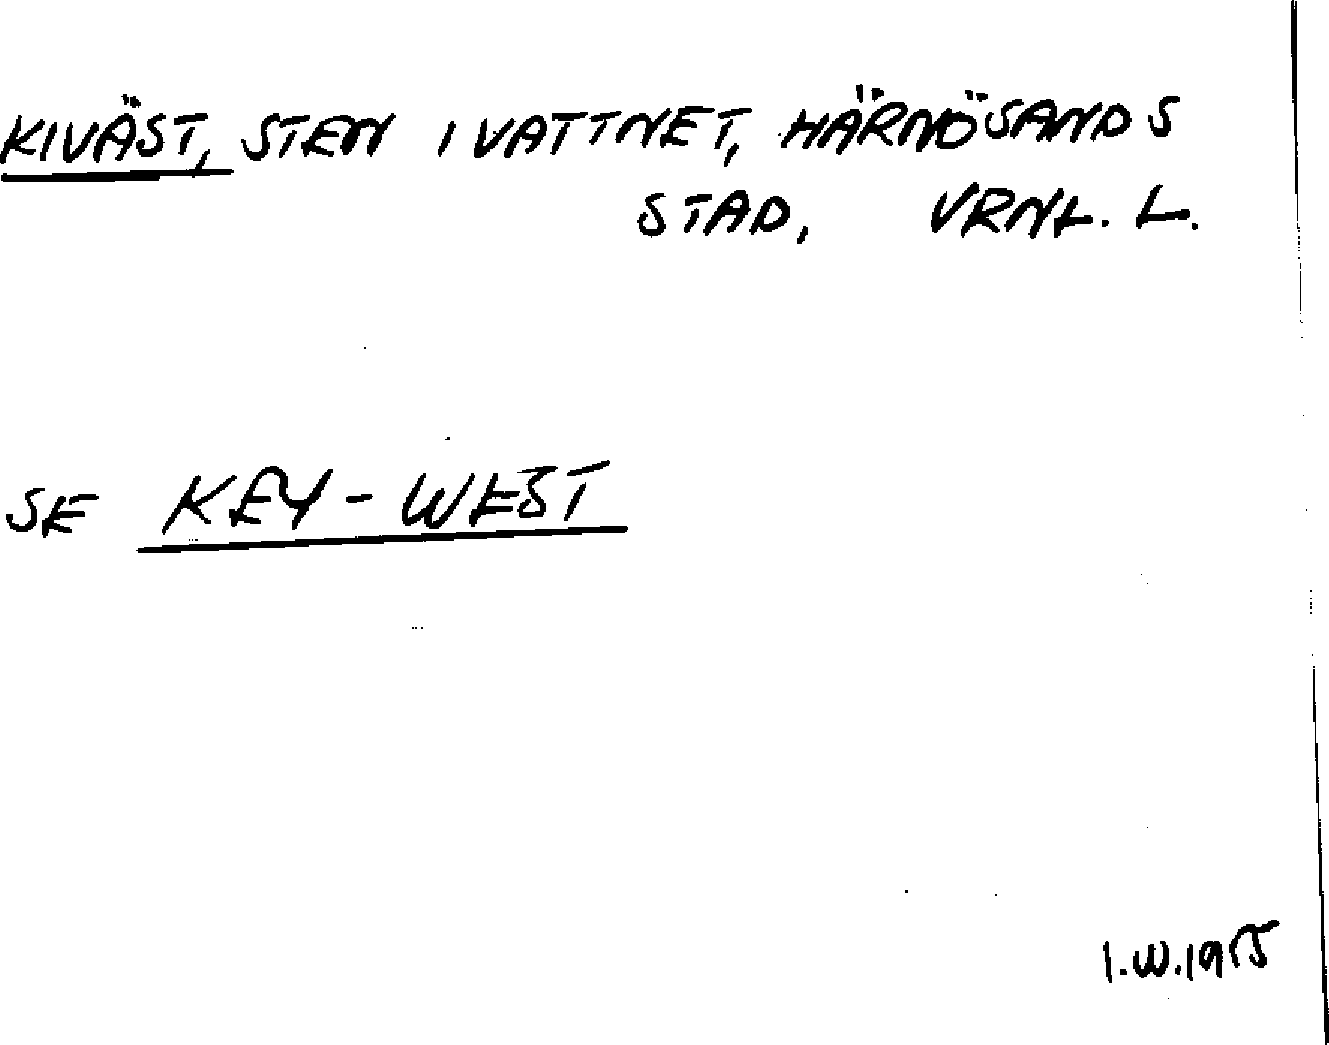 KIVÄST, STEN I VATTNET, HÄRNÖSANDS
STAD, VRNL. L.
SE KEY-WEST
I.W.1955